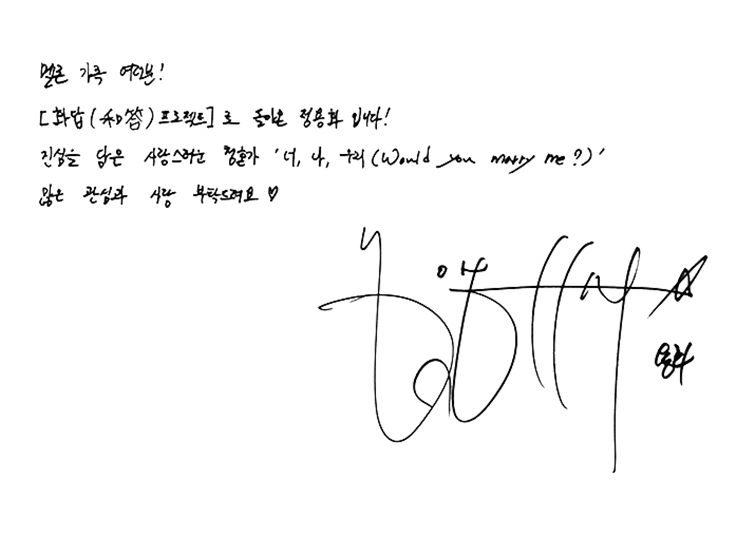 멜론 가족 여러분!
[화답(和答)프로젝트]로 돌아온 정용화 입니다!
진심을 담은 사랑스러운 청혼가 '너, 나, 우리(Would you marry me?)'
많은 관심과 사랑 부탁드려요♡
용화